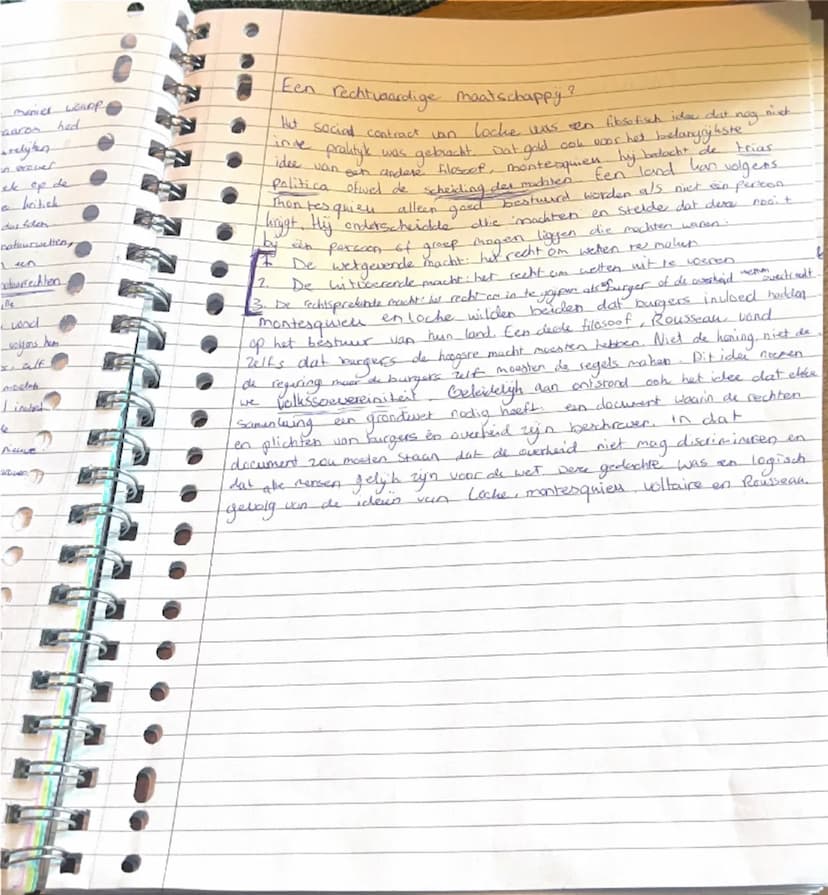 manier waarop
aaron had
en erover
ek op de
kritiek
natuurwetten,
een
natuurrechten
vond
volgens hem
zelf
nieuwe
Een rechtvaardige maatschappij?
Het social contract van Locke was een filosofisch idee dat nog niet
in de praktijk was gebracht. Dat gold ook voor het belangrijkste
idee van een andere filosoof, montesquieu hij bedacht de trias
politica ofwel de scheiding der machten. Een land kan volgens
montesquieu alleen goed bestuurd worden als niet één persoon
krijgt. Hij onderscheidde drie machten en stelde dat deze nooit
bij één persoon of groep mogen liggen die machten waren:
1. De wetgevende macht: het recht om wetten te maken
2. De uitvoerende macht: het recht om wetten uit te voeren
3. De rechtsprekende macht: het recht om in te grijpen als burger of de overheid overtreedt
montesquieu en locke wilden beiden dat burgers invloed hadden
op het bestuur van hun land. Een derde filosoof, Rousseau vond
zelfs dat burgers de hoogste macht moesten hebben. Niet de koning, niet de
de regering maar de burgers zelf moesten de regels maken. Dit idee noemen
we volkssoevereiniteit. Geleidelijk aan ontstond ook het idee dat elke
samenleving een grondwet nodig heeft: een document waarin de rechten
en plichten van burgers én overheid zijn beschreven. in dat
document zou moeten staan dat de overheid niet mag discrimineren en
dat alle mensen gelijk zijn voor de wet. Deze gedachte was een logisch
gevolg van de ideeën van Locke, montesquieu, voltaire en Rousseau.